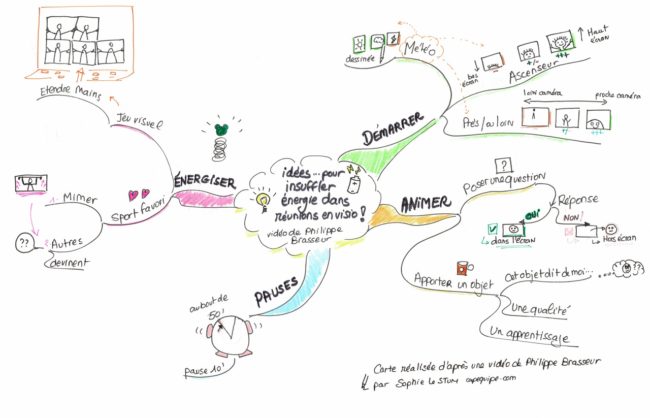 idées...pour
insuffler
énergie dans
réunions en visio !
vidéo de Philippe
Brasseur
DÉMARRER
Météo
dessinée
Ascenseur
bas
écran
+/-
+++
Haut
écran
Près/ou loin
loin caméra
proche caméra
+/-
+++
ANIMER
Poser une question
?
Réponse
OUI
dans l'écran
NON!
Hors écran
Apporter un objet
Cet objet dit de moi...
??
Une qualité
Un apprentissage
PAUSES
au bout de
50'
pause 10'
ÉNERGISER
Jeu visuel
Etendre mains
Sport favori
1. Mimer
2. Autres
devinent
??
Carte réalisée d'après une vidéo de Philippe Brasseur
par Sophie Le STUM capequipe.com